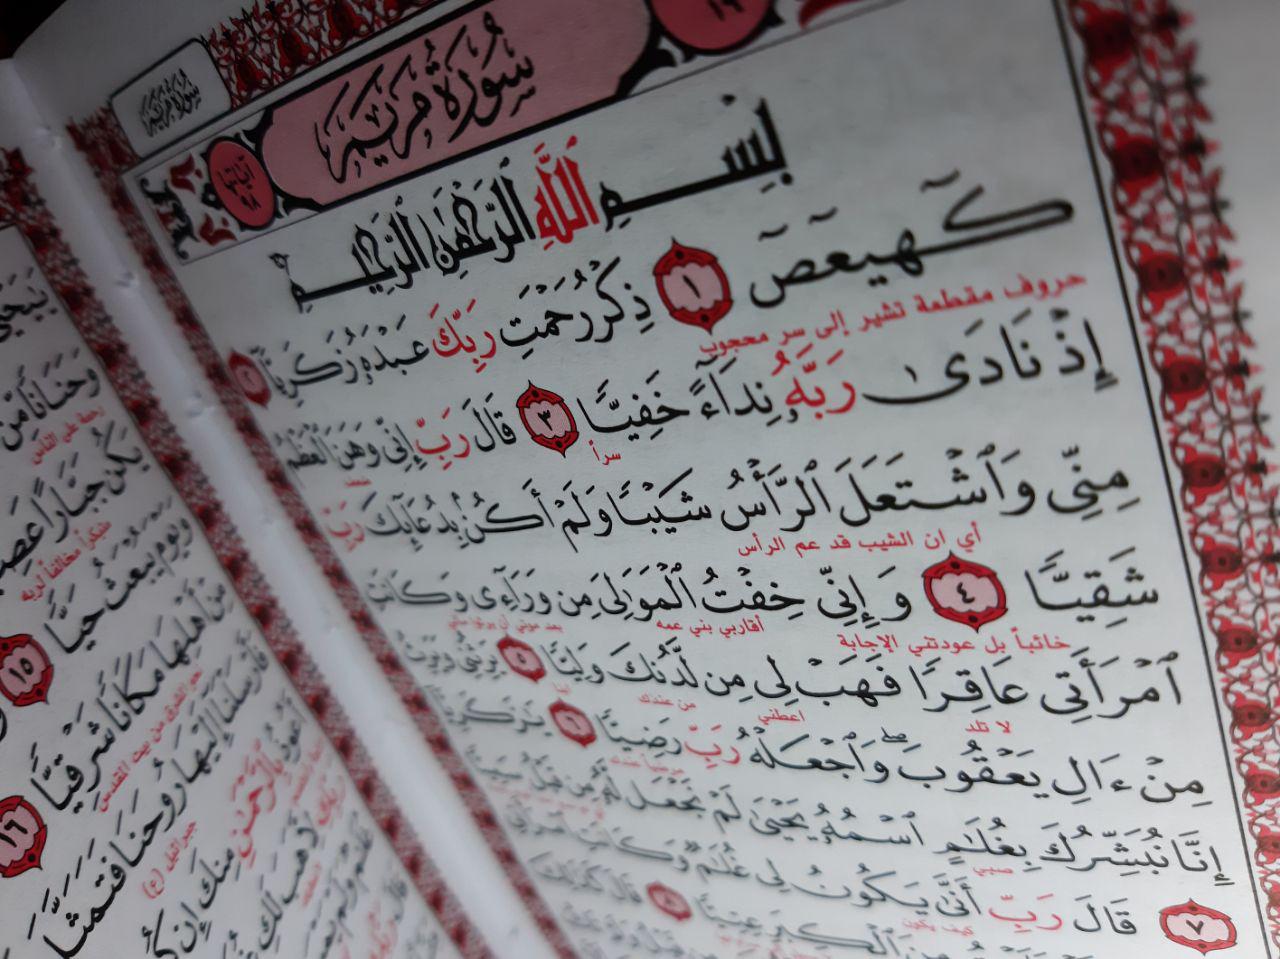 سُورَةُ مَرْيَمَ
١٩
سُورَةُ مَرْيَمَ
آياتها ٩٨
بِسْمِ ٱللَّهِ ٱلرَّحْمَٰنِ ٱلرَّحِيمِ
كٓهيعٓصٓ ١ ذِكْرُ رَحْمَتِ رَبِّكَ عَبْدَهُۥ زَكَرِيَّآ ٢
حروف مقطعة تشير إلى سر محجوب
إِذْ نَادَىٰ رَبَّهُۥ نِدَآءً خَفِيًّا ٣ قَالَ رَبِّ إِنِّى وَهَنَ ٱلْعَظْمُ
سرأ
مِنِّى وَٱشْتَعَلَ ٱلرَّأْسُ شَيْبًا وَلَمْ أَكُنۢ بِدُعَآئِكَ رَبِّ
أي ان الشيب قد عم الرأس
شَقِيًّا ٤ وَإِنِّى خِفْتُ ٱلْمَوَٰلِىَ مِن وَرَآءِى وَكَانَتِ
خائباً بل عودتني الإجابة أقاربي بني عمه
ٱمْرَأَتِى عَاقِرًا فَهَبْ لِى مِن لَّدُنكَ وَلِيًّا ٥ يَرِثُنِى وَيَرِثُ
لا تلد اعطني من عندك
مِنْ ءَالِ يَعْقُوبَ ۖ وَٱجْعَلْهُ رَبِّ رَضِيًّا ٦ يَٰزَكَرِيَّآ
إِنَّا نُبَشِّرُكَ بِغُلَٰمٍ ٱسْمُهُۥ يَحْيَىٰ لَمْ نَجْعَل لَّهُۥ مِن قَبْلُ سَمِيًّا
صبي
٧ قَالَ رَبِّ أَنَّىٰ يَكُونُ لِى غُلَٰمٌ وَكَانَتِ ٱمْرَأَتِى
كيف يكون
ٱلْكِبَرِ عِتِيًّا ٨ قَالَ كَذَٰلِكَ
وَحَنَانًا مِّن
رحمة على الناس
يَكُن جَبَّارًا عَصِيًّا
متكبراً مخالفاً لربه
وَيَوْمَ يُبْعَثُ حَيًّا ١٥
مِنْ أَهْلِهَا مَكَانًا شَرْقِيًّا ١٦
فَأَرْسَلْنَآ إِلَيْهَا رُوحَنَا فَتَمَثَّلَ
جبرائيل (ع)
أَعُوذُ بِٱلرَّحْمَٰنِ مِنكَ إِن
رَبِّكِ لِأَهَبَ لَكِ